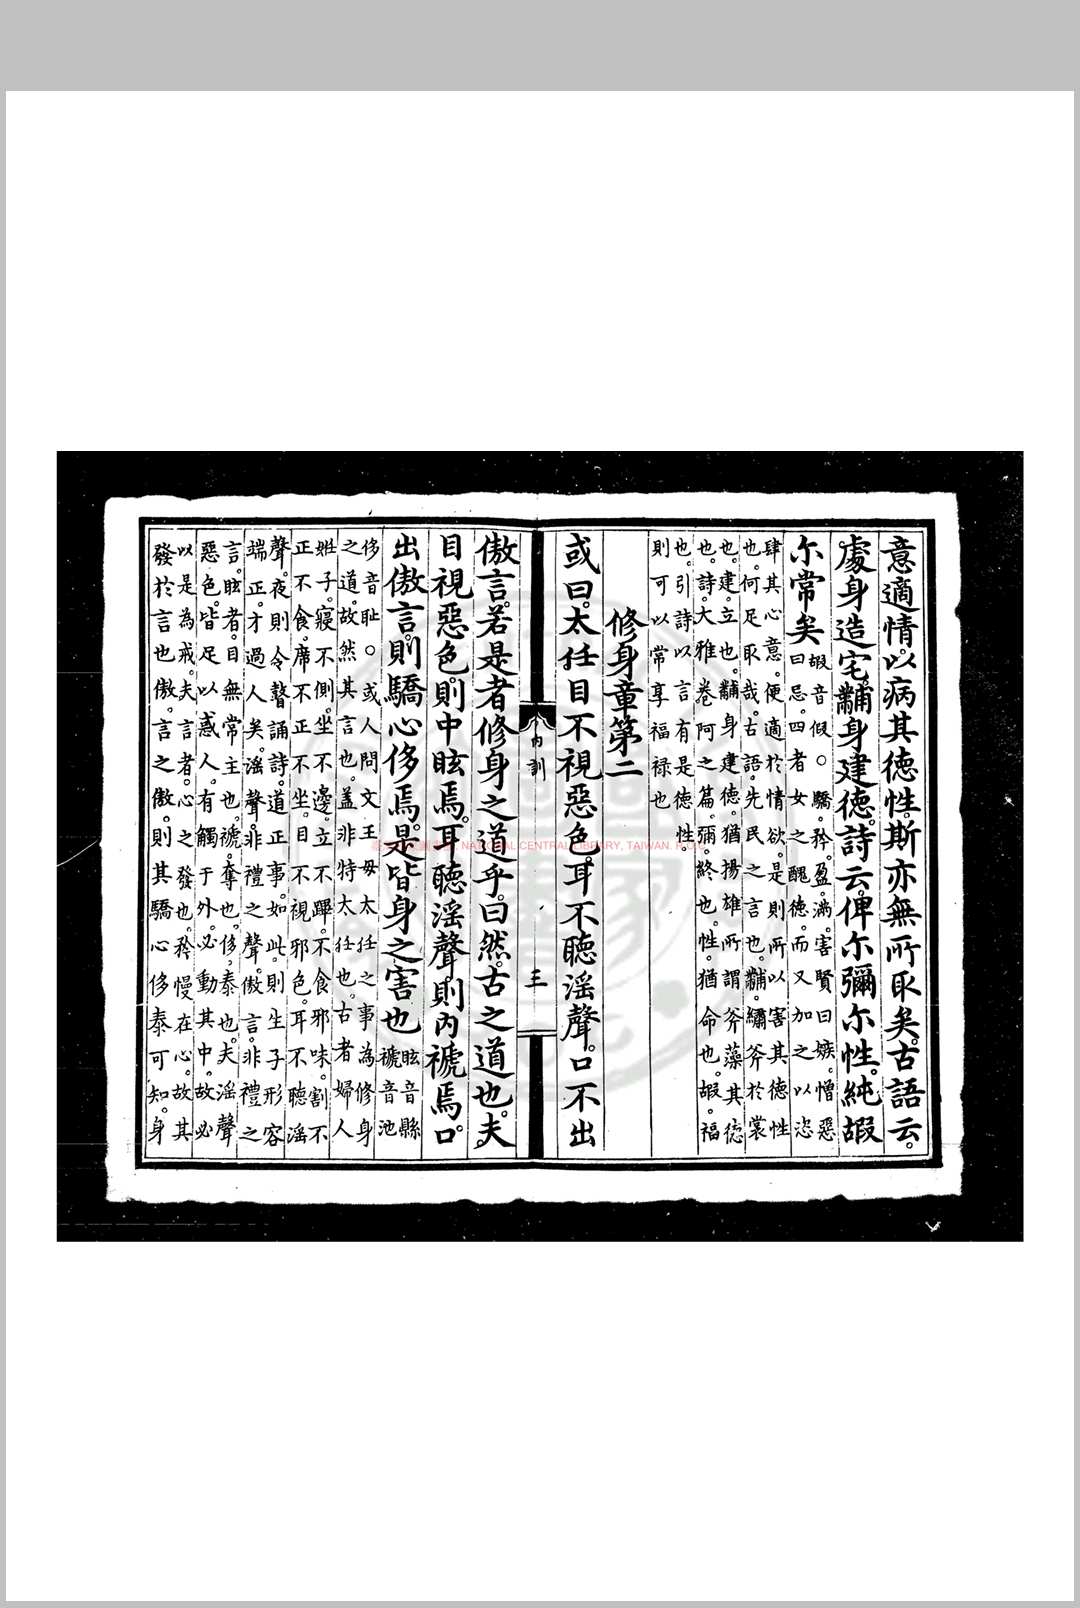 意適情。以病其德性。斯亦無所取矣。古語云。
處身造宅。黼身建德。詩云。俾尓彌尓性。純嘏
尓常矣
嘏音假○驕。矜。盈。滿。害賢曰嫉。憎惡
曰忌。四者女之醜德。而又加之以恣
肆其心意。便適於情欲。是則所以害其德性
也。何足取哉。古語。先民之言也。黼。繡斧於裳
也。建。立也。黼身建德。猶揚雄所謂斧藻其德
也。詩。大雅卷阿之篇。彌。終也。性。猶命也。嘏。福
也。引詩以言有是德性。
則可以常享福祿也
修身章第二
或曰。太任目不視惡色。耳不聽淫聲。口不出
內訓
三
傲言。若是者修身之道乎。曰然。古之道也。夫
目視惡色。則中眩焉。耳聽淫聲。則內褫焉。口
出傲言。則驕心侈焉。是皆身之害也
眩音縣
褫音池
侈音耻○或人問文王母太任之事為修身
之道。故然其言也。盖非特太任也。古者婦人
姙子。寢不側。坐不邊。立不蹕。不食邪味。割不
正不食。席不正不坐。目不視邪色。耳不聽淫
聲。夜則令瞽誦詩。道正事。如此。則生子形容
端正。才過人矣。淫聲。非禮之聲。傲言。非禮之
言。眩者。目無常主也。褫。奪也。侈。泰也。夫淫聲
惡色。皆足以惑人。有觸于外。必動其中。故必
以是為戒。夫言者。心之發也。矜慢在心。故其
發於言也傲。言之傲。則其驕心侈泰可知。身
NATIONAL CENTRAL LIBRARY, TAIWAN. R.O.C.